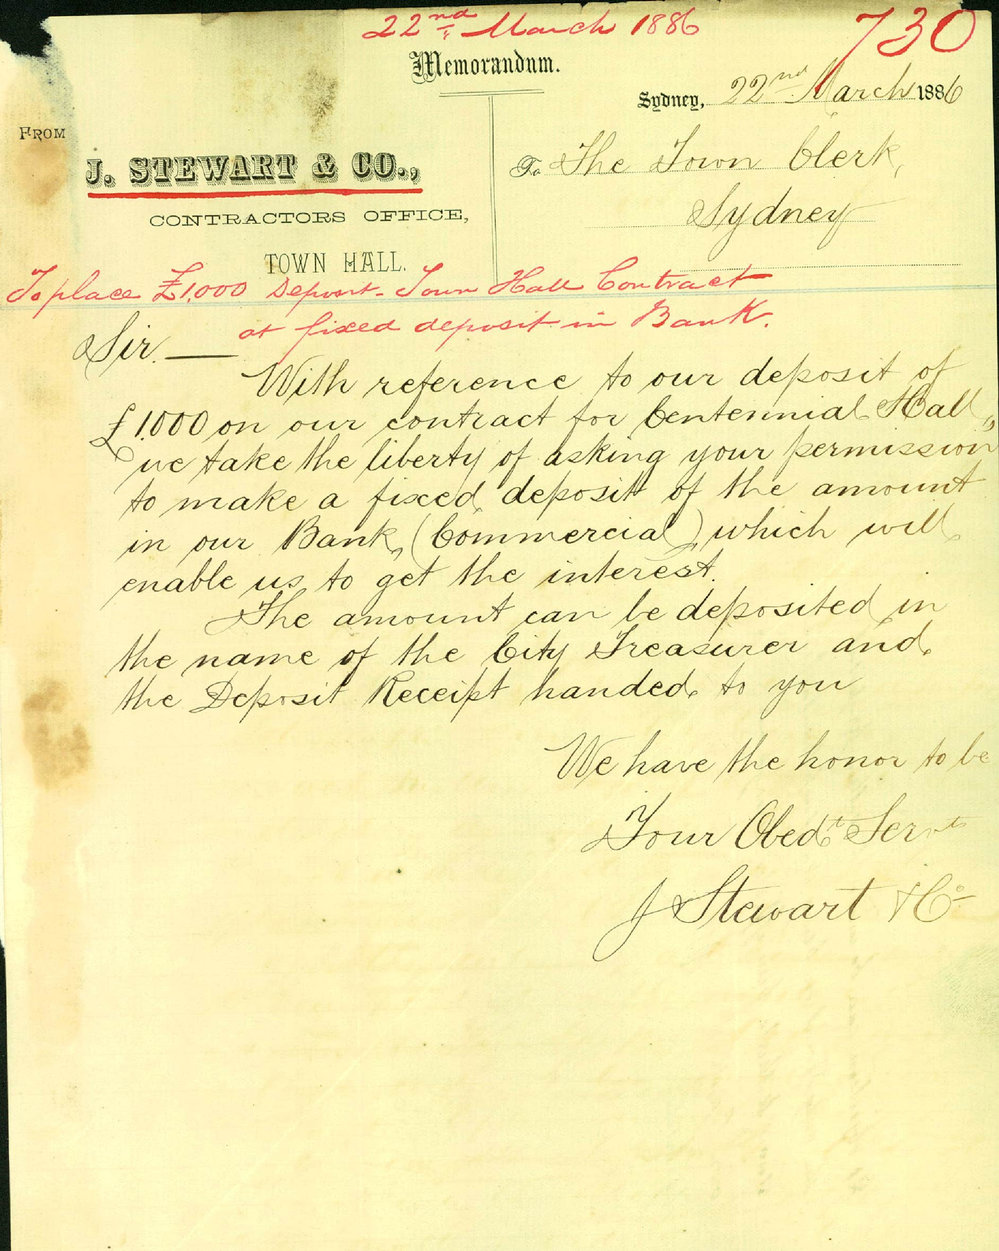 22nd March 1886
730
Memorandum.
Sydney, 22nd March 1886
FROM
J. STEWART & CO.,
CONTRACTORS OFFICE,
TOWN HALL.
To The Town Clerk,
Sydney
To place £1,000 Deposit - Town Hall Contract
at fixed deposit in Bank.
Sir. —
With reference to our deposit of
£1.000 on our contract for Centennial Hall,
we take the liberty of asking your permission
to make a fixed deposit of the amount
in our Bank, (Commercial), which will
enable us to get the interest.
The amount can be deposited in
the name of the City Treasurer and
the Deposit Receipt handed to you
We have the honor to be
Your Obedt Servts
J Stewart & Co